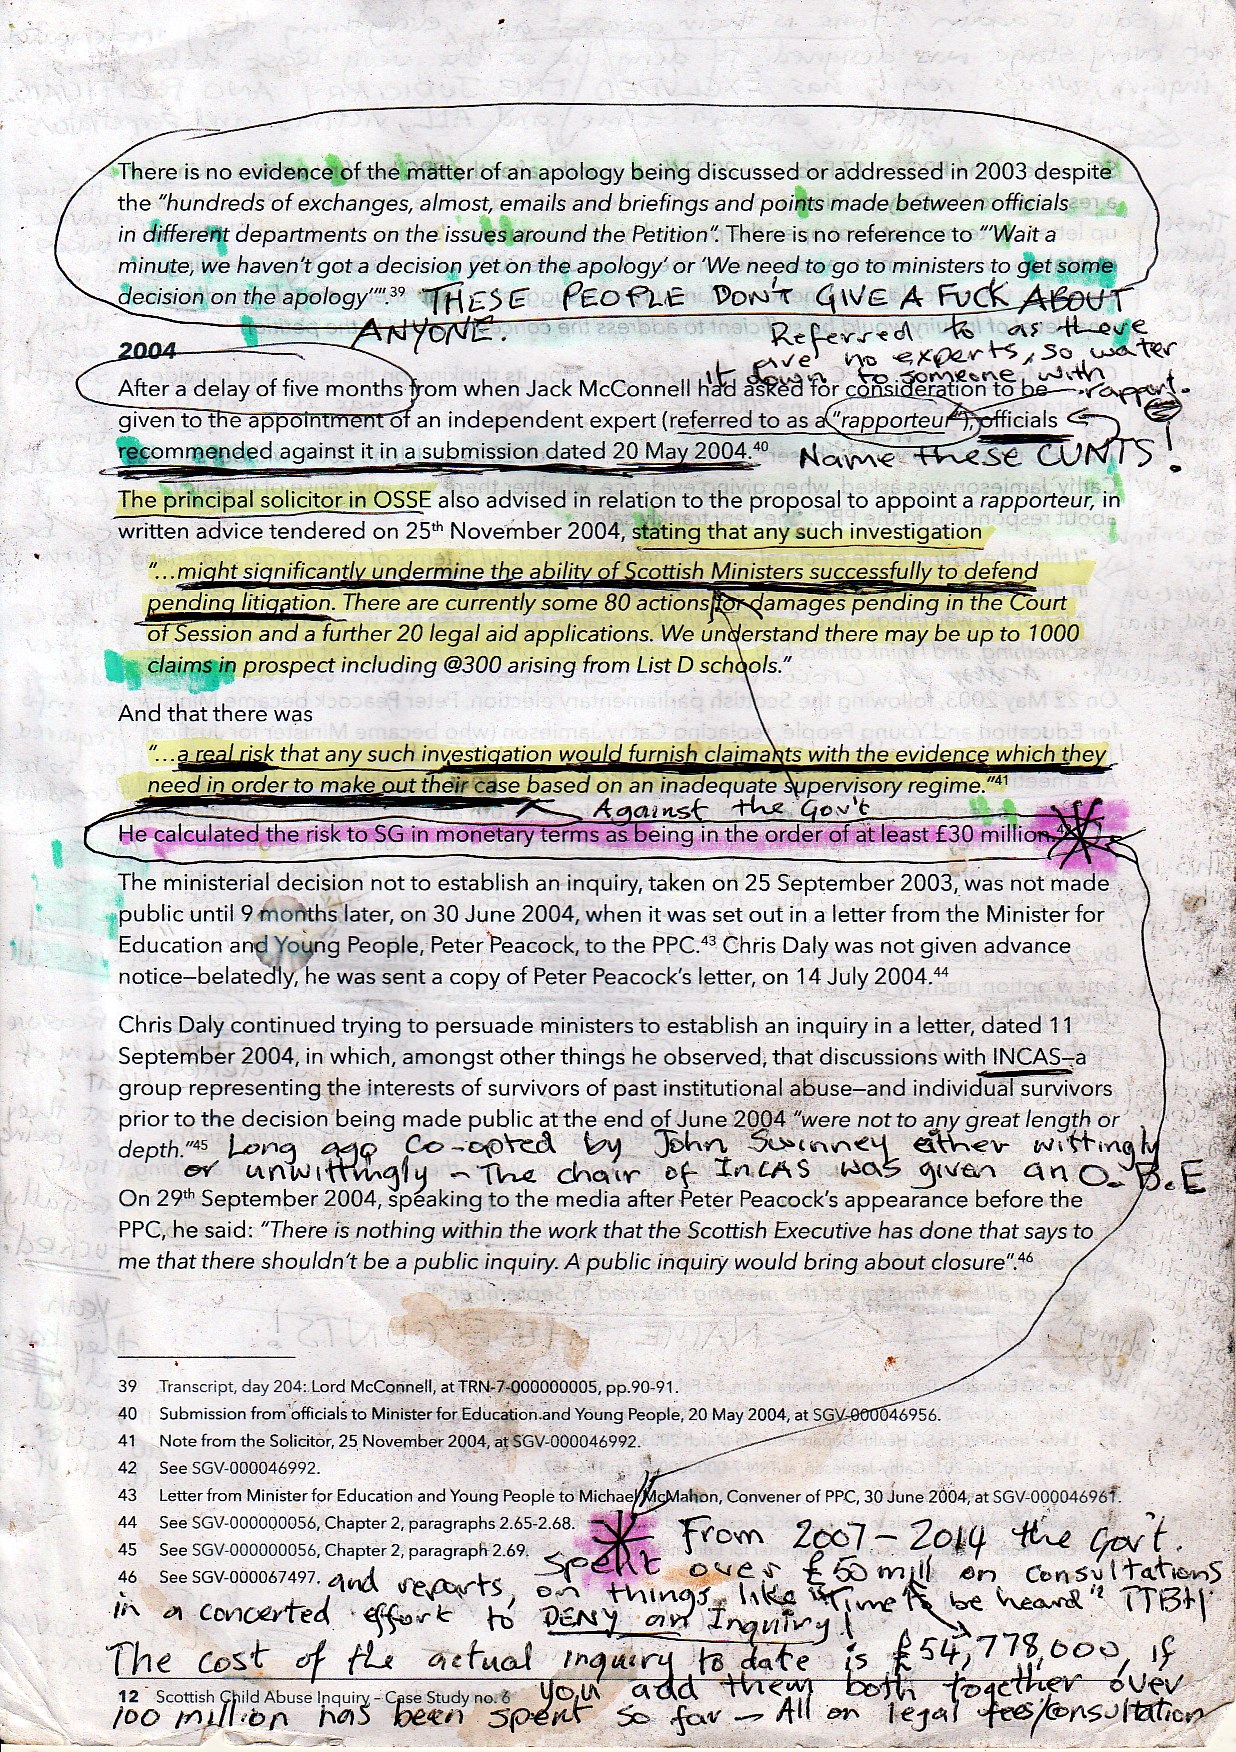 There is no evidence of the matter of an apology being discussed or addressed in 2003 despite
the “hundreds of exchanges, almost, emails and briefings and points made between officials
in different departments on the issues around the Petition”. There is no reference to “‘Wait a
minute, we haven’t got a decision yet on the apology’ or ‘We need to go to ministers to get some
decision on the apology’”.39 THESE PEOPLE DON'T GIVE A FUCK ABOUT
ANYONE.
2004
Referred to as there
are no experts, so water
it down to someone with
rapport.
After a delay of five months from when Jack McConnell had asked for consideration to be
given to the appointment of an independent expert (referred to as a “rapporteur”), officials
recommended against it in a submission dated 20 May 2004.40 Name these CUNTS!
The principal solicitor in OSSE also advised in relation to the proposal to appoint a rapporteur, in
written advice tendered on 25th November 2004, stating that any such investigation
“…might significantly undermine the ability of Scottish Ministers successfully to defend
pending litigation. There are currently some 80 actions for damages pending in the Court
of Session and a further 20 legal aid applications. We understand there may be up to 1000
claims in prospect including @300 arising from List D schools.”
And that there was
“…a real risk that any such investigation would furnish claimants with the evidence which they
need in order to make out their case based on an inadequate supervisory regime.”41
Against the Gov't
He calculated the risk to SG in monetary terms as being in the order of at least £30 million.
The ministerial decision not to establish an inquiry, taken on 25 September 2003, was not made
public until 9 months later, on 30 June 2004, when it was set out in a letter from the Minister for
Education and Young People, Peter Peacock, to the PPC.43 Chris Daly was not given advance
notice—belatedly, he was sent a copy of Peter Peacock’s letter, on 14 July 2004.44
Chris Daly continued trying to persuade ministers to establish an inquiry in a letter, dated 11
September 2004, in which, amongst other things he observed, that discussions with INCAS—a
group representing the interests of survivors of past institutional abuse—and individual survivors
prior to the decision being made public at the end of June 2004 “were not to any great length or
depth.”45 Long ago co-opted by John Swinney either wittingly
or unwittingly - The chair of InCAS was given an O.B.E
On 29th September 2004, speaking to the media after Peter Peacock’s appearance before the
PPC, he said: “There is nothing within the work that the Scottish Executive has done that says to
me that there shouldn’t be a public inquiry. A public inquiry would bring about closure”.46
39 Transcript, day 204: Lord McConnell, at TRN-7-000000005, pp.90-91.
40 Submission from officials to Minister for Education and Young People, 20 May 2004, at SGV-000046956.
41 Note from the Solicitor, 25 November 2004, at SGV-000046992.
42 See SGV-000046992.
43 Letter from Minister for Education and Young People to Michael McMahon, Convener of PPC, 30 June 2004, at SGV-000046961.
44 See SGV-000000056, Chapter 2, paragraphs 2.65-2.68.
45 See SGV-000000056, Chapter 2, paragraph 2.69.
46 See SGV-000067497.
From 2007 - 2014 the Gov't.
spent over £50 mill on consultations
and reports, on things like "Time to be heard" TTBH
in a concerted effort to DENY an Inquiry!
The cost of the actual inquiry to date is £54,778,000, if
you add them both together over
100 million has been spent so far - All on legal fees/consultation
12 Scottish Child Abuse Inquiry – Case Study no. 6